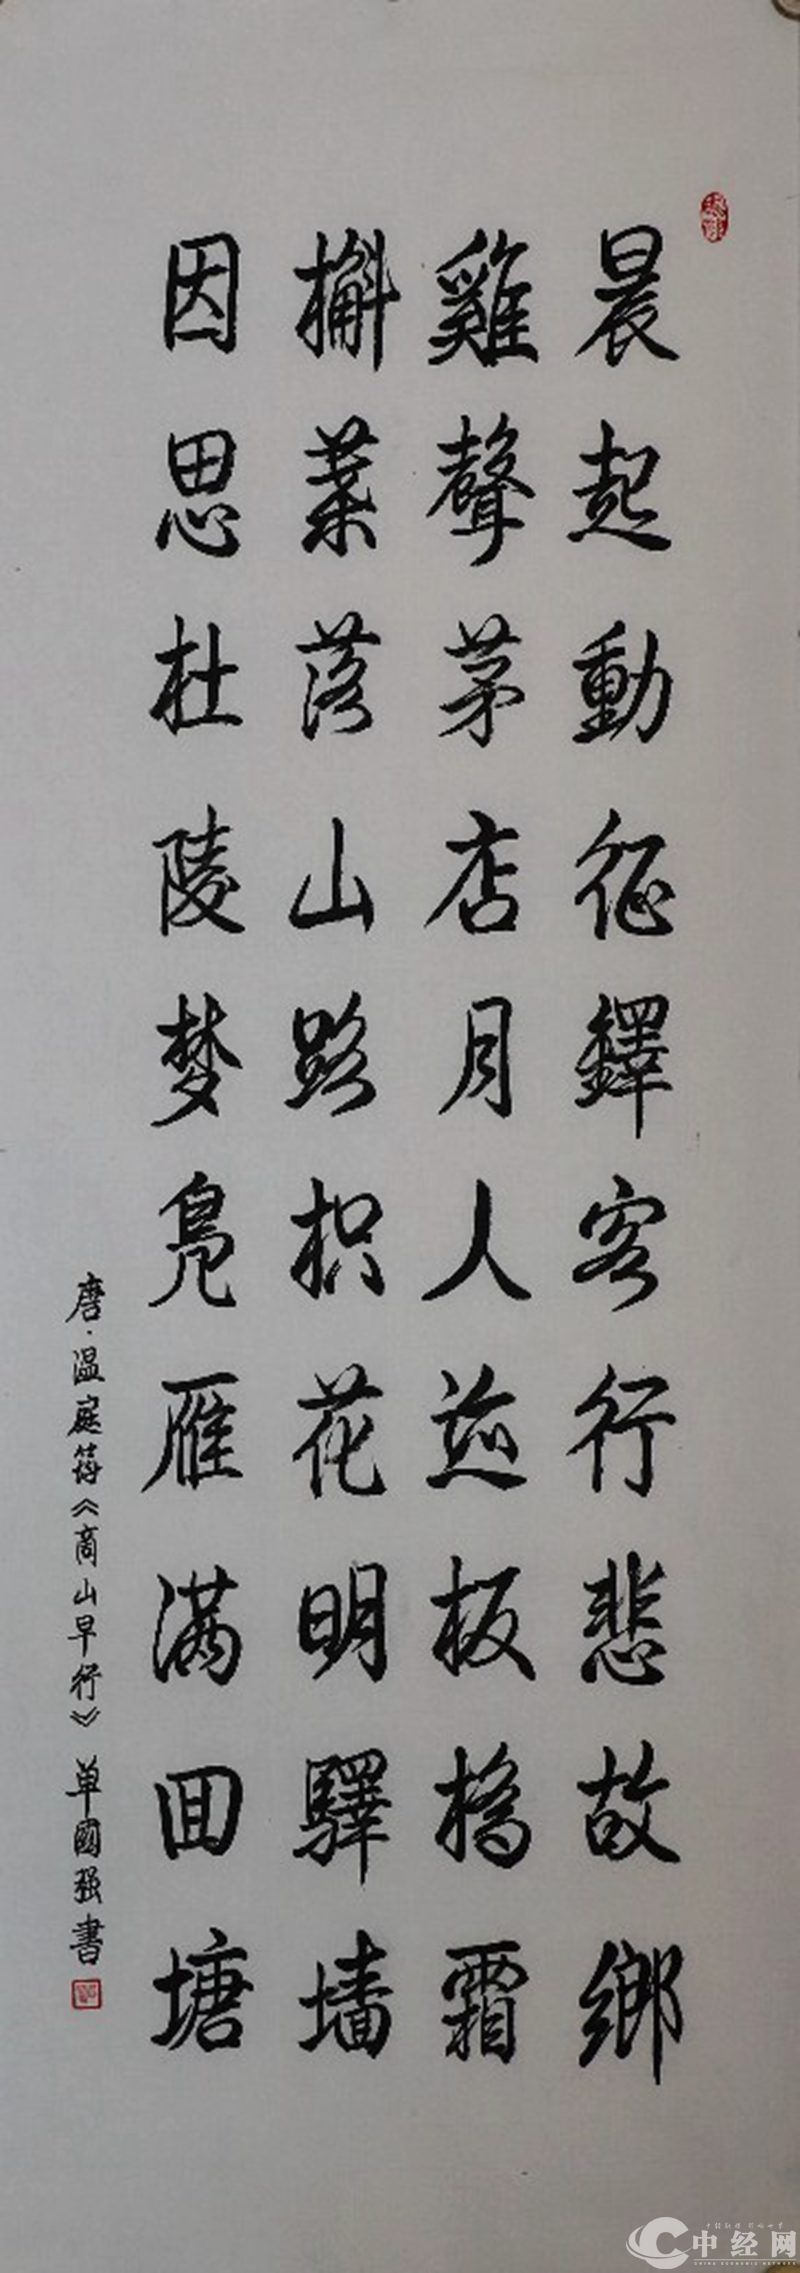 晨起動征鐸客行悲故鄉
雞聲茅店月人迹板橋霜
槲葉落山路枳花明驛墻
因思杜陵梦凫雁满回塘
唐·温庭筠《商山早行》 单國强書
中经网
CHINA ECONOMIC NETWORK